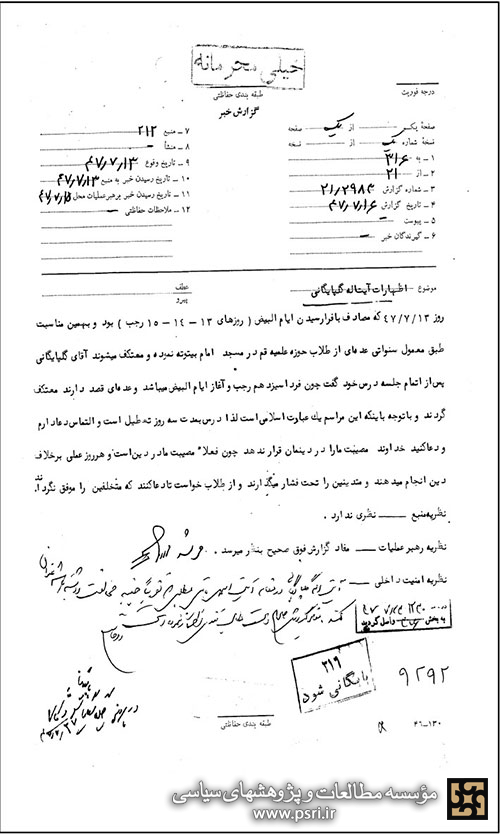 خیلی محرمانه
طبقه بندی حفاظتی
درجه فوریت
گزارش خبر
صفحه یک از یک صفحه
نسخه شماره یک از نسخه
۱ ـ به ۳۱۶
۲ ـ از ۲۱
۳ ـ شماره گزارش ۲۱/۲۹۸۴
۴ ـ تاریخ گزارش ۴۷/۷/۱۶
۵ ـ پیوست -
۶ ـ گیرندگان خبر -
۷ ـ منبع ۲۱۲
۸ ـ منشأ -
۹ ـ تاریخ وقوع ۴۷/۷/۱۳
۱۰ ـ تاریخ رسیدن خبر به منبع ۴۷/۷/۱۳
۱۱ ـ تاریخ رسیدن خبر برهبر عملیات محل ۴۷/۷/۱۵
۱۲ ـ ملاحظات حفاظتی -
موضوع ـ اظهارات آیتاله گلپایگانی
عطف
پیرو
روز ۴۷/۷/۱۳ که مصادف بافرارسیدن ایام البیض ( روزهای ۱۳ - ۱۴ - ۱۵ رجب ) بود و بهمین مناسبت
طبق معمول سنواتی عده‌ای از طلاب حوزه علمیه قم در مسجد امام بیتوته نموده و معتکف میشوند آقای گلپایگانی
پس از اتمام جلسه درس خود گفت چون فردا سیزدهم رجب و آغاز ایام البیض میباشد و عده‌ای قصد دارند معتکف
گردند و باتوجه باینکه این مراسم یك عبادت اسلامی است لذا درس بمدت سه روز تعطیل است و التماس دعا دارم
و دعا کنید خداوند مصیبت ما را در دینمان قرار ندهد چون فعلاً مصیبت ما در دین است و هر روز عملی برخلاف
دین انجام میدهند و متدینین را تحت فشار میگذارند و از طلاب خواست تا دعا کنند که متخلفین را موفق نگرداند.
نظریه منبع - نظری ندارد .
نظریه رهبر عملیات - مفاد گزارش فوق صحیح بنظر میرسد .
نظریه امنیت داخلی -
۳۱۹
بایگانی شود
۹۲۹۲
طبقه بندی حفاظتی
۴۶-۱۳۰
مؤسسه مطالعات و پژوهشهای سیاسی
www.psri.ir